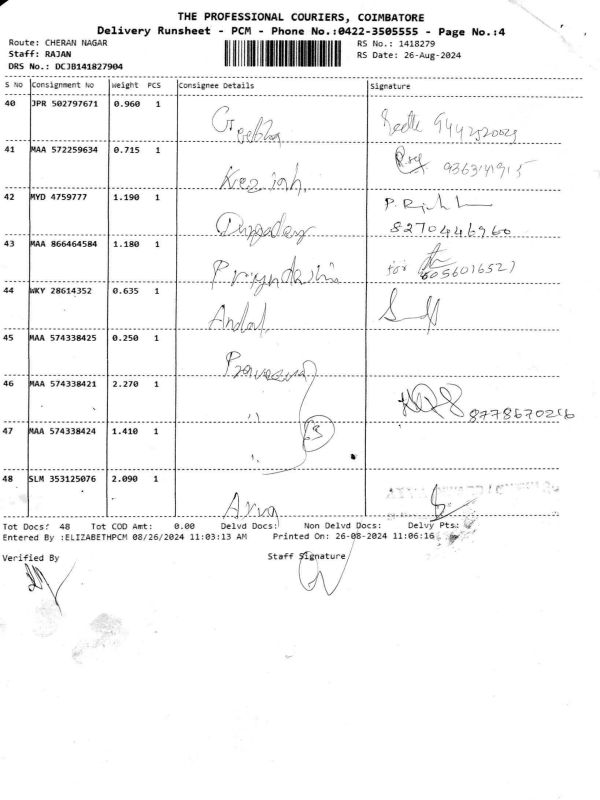 THE PROFESSIONAL COURIERS, COIMBATORE
Delivery Runsheet - PCM - Phone No.:0422-3505555 - Page No.:4
Route: CHERAN NAGAR RS No.: 1418279
Staff: RAJAN RS Date: 26-Aug-2024
DRS No.: DCJB141827904
S No Consignment No Weight PCS Consignee Details Signature
40 JPR 502797671 0.960 1
41 MAA 572259634 0.715 1
Keziah
42 MYD 4759777 1.190 1
8270446960
43 MAA 866464584 1.180 1
for
Priyadarshini
44 WKY 28614352 0.635 1
Andal
45 MAA 574338425 0.250 1
46 MAA 574338421 2.270 1
,, 8778670256
47 MAA 574338424 1.410 1
63
,,
48 SLM 353125076 2.090 1
Tot Docs: 48 Tot COD Amt: 0.00 Delvd Docs: Non Delvd Docs: Delvy Pts:
Entered By :ELIZABETHPCM 08/26/2024 11:03:13 AM Printed On: 26-08-2024 11:06:16
Verified By Staff Signature